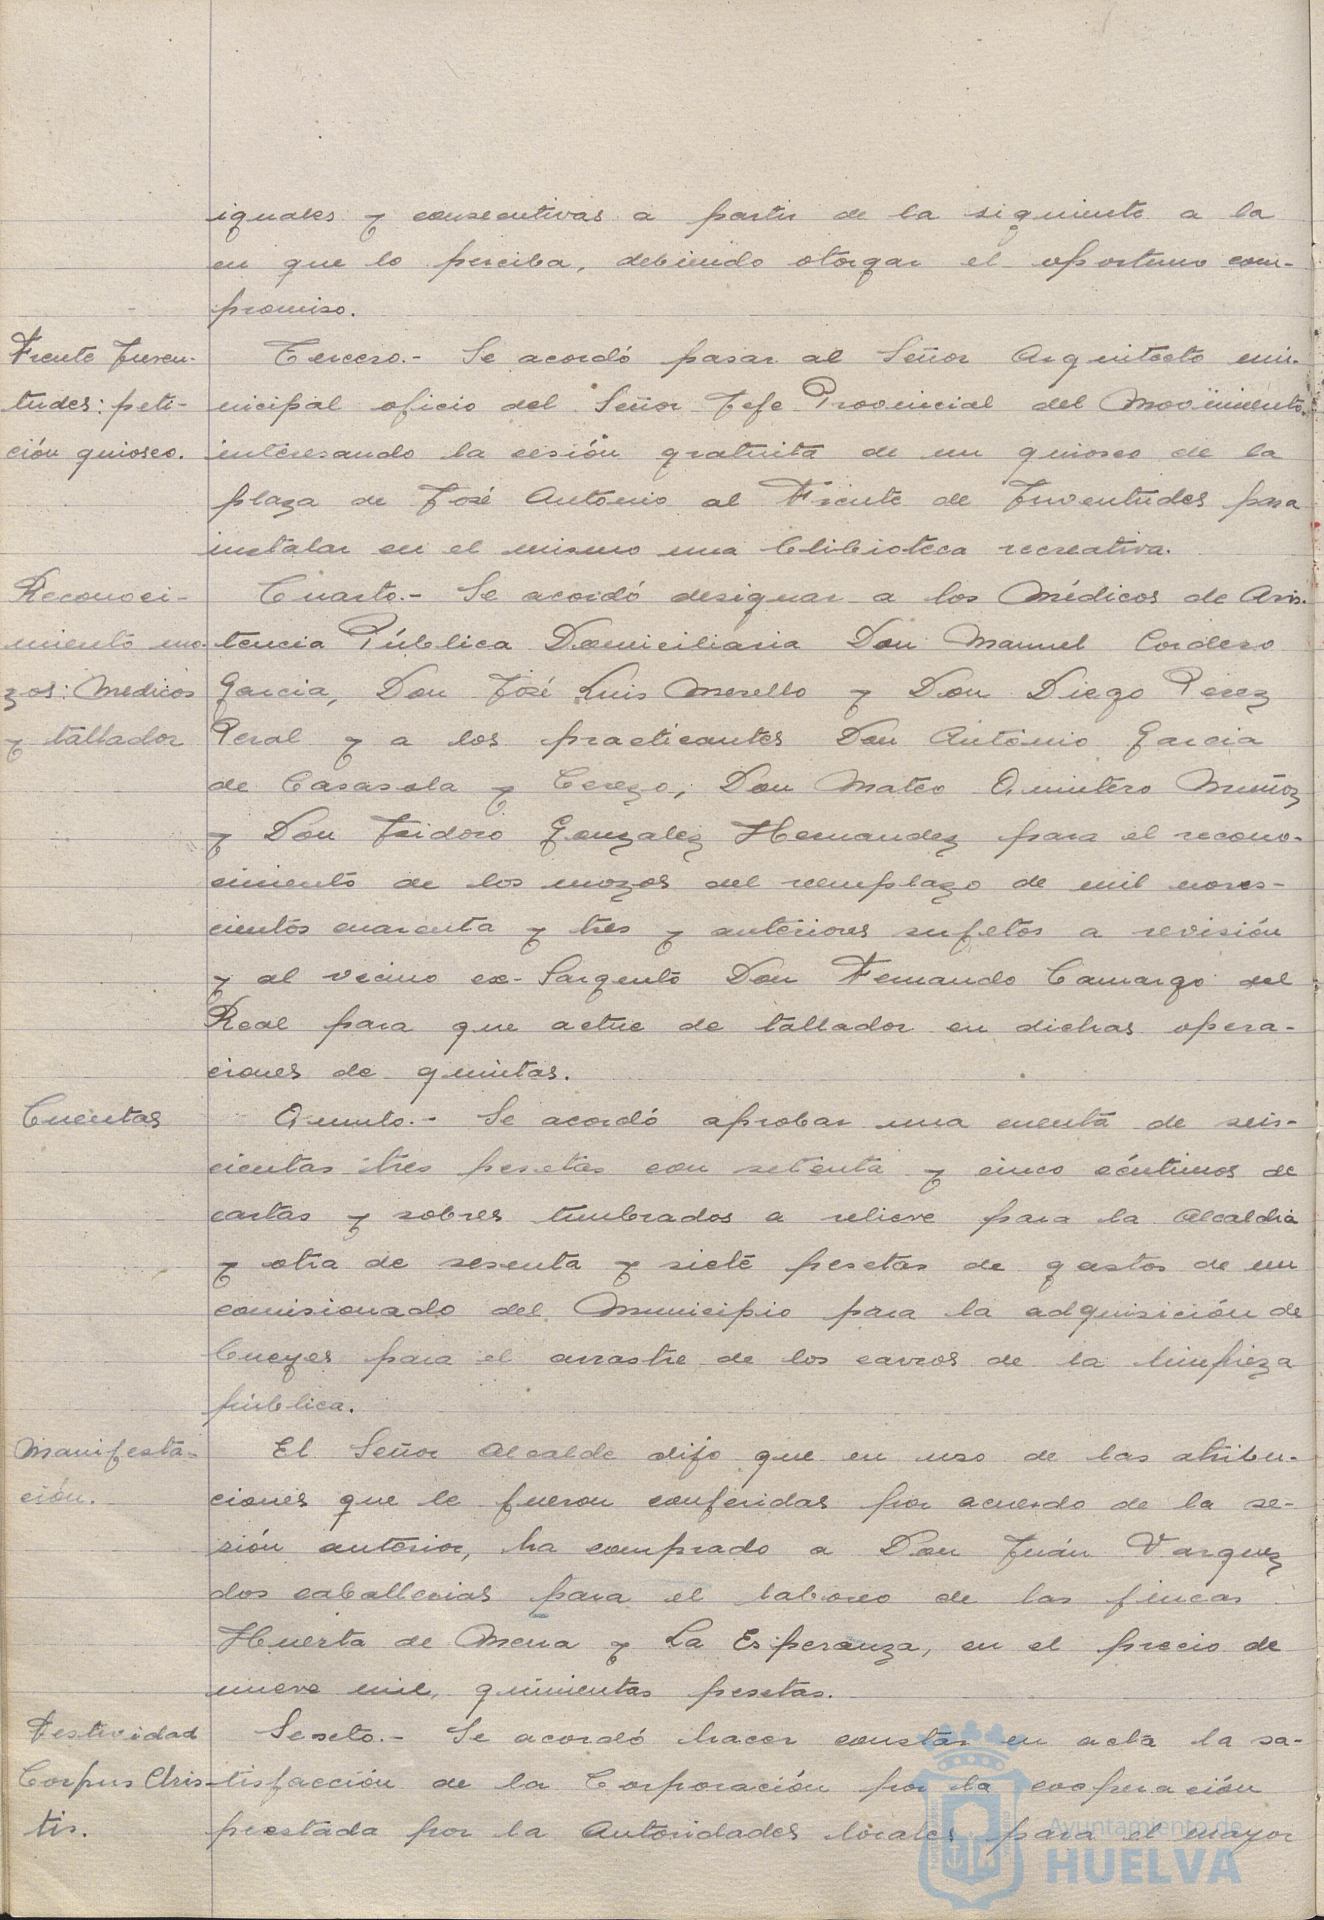 iguales y consecutivas a partir de la siguiente a la
en que lo perciba, debiendo otorgar el oportuno com-
promiso.
Frente Juven-
tudes: peti-
ción quiosco.
Tercero.- Se acordó pasar al Señor Arquitecto mu-
nicipal oficio del Señor Jefe Provincial del Movimiento
interesando la cesión gratuita de un quiosco de la
plaza de José Antonio al Frente de Juventudes para
instalar en el mismo una biblioteca recreativa.
Reconoci-
miento mo-
zos: Medicos
y tallador
Cuarto.- Se acordó designar a los Médicos de Asis-
tencia Pública Domiciliaria Don Manuel Cordero
Garcia, Don José Luis Morello y Don Diego Perez
Peral y a los practicantes Don Antonio Garcia
de Casasola y Cerezo, Don Mateo Quintero Muñoz
y Don Isidoro Gonzalez Hernandez para el recono-
cimiento de los mozos del reemplazo de mil noves-
cientos cuarenta y tres y anteriores sujetos a revisión
y al vecino ex-Sargento Don Fernando Camargo del
Real para que actue de tallador en dichas opera-
ciones de quintas.
Cuentas
Quinto.- Se acordó aprobar una cuenta de seis-
cientas tres pesetas con setenta y cinco céntimos de
cartas y sobres timbrados a relieve para la Alcaldia
y otra de sesenta y siete pesetas de gastos de un
comisionado del Municipio para la adquisición de
bueyes para el arrastre de los carros de la limpieza
pública.
Manifesta-
ción.
El Señor Alcalde dijo que en uso de las atribu-
ciones que le fueron conferidas por acuerdo de la se-
sión anterior, ha comprado a Don Juán Vazquez
dos caballerias para el laboreo de las fincas
Huerta de Mena y La Esperanza, en el precio de
nueve mil, quinientas pesetas.
Festividad
Corpus Chris-
tis.
Sexto.- Se acordó hacer constar en acta la sa-
tisfacción de la Corporación por la cooperación
prestada por la Autoridades locales para el mayor
Ayuntamiento de
HUELVA